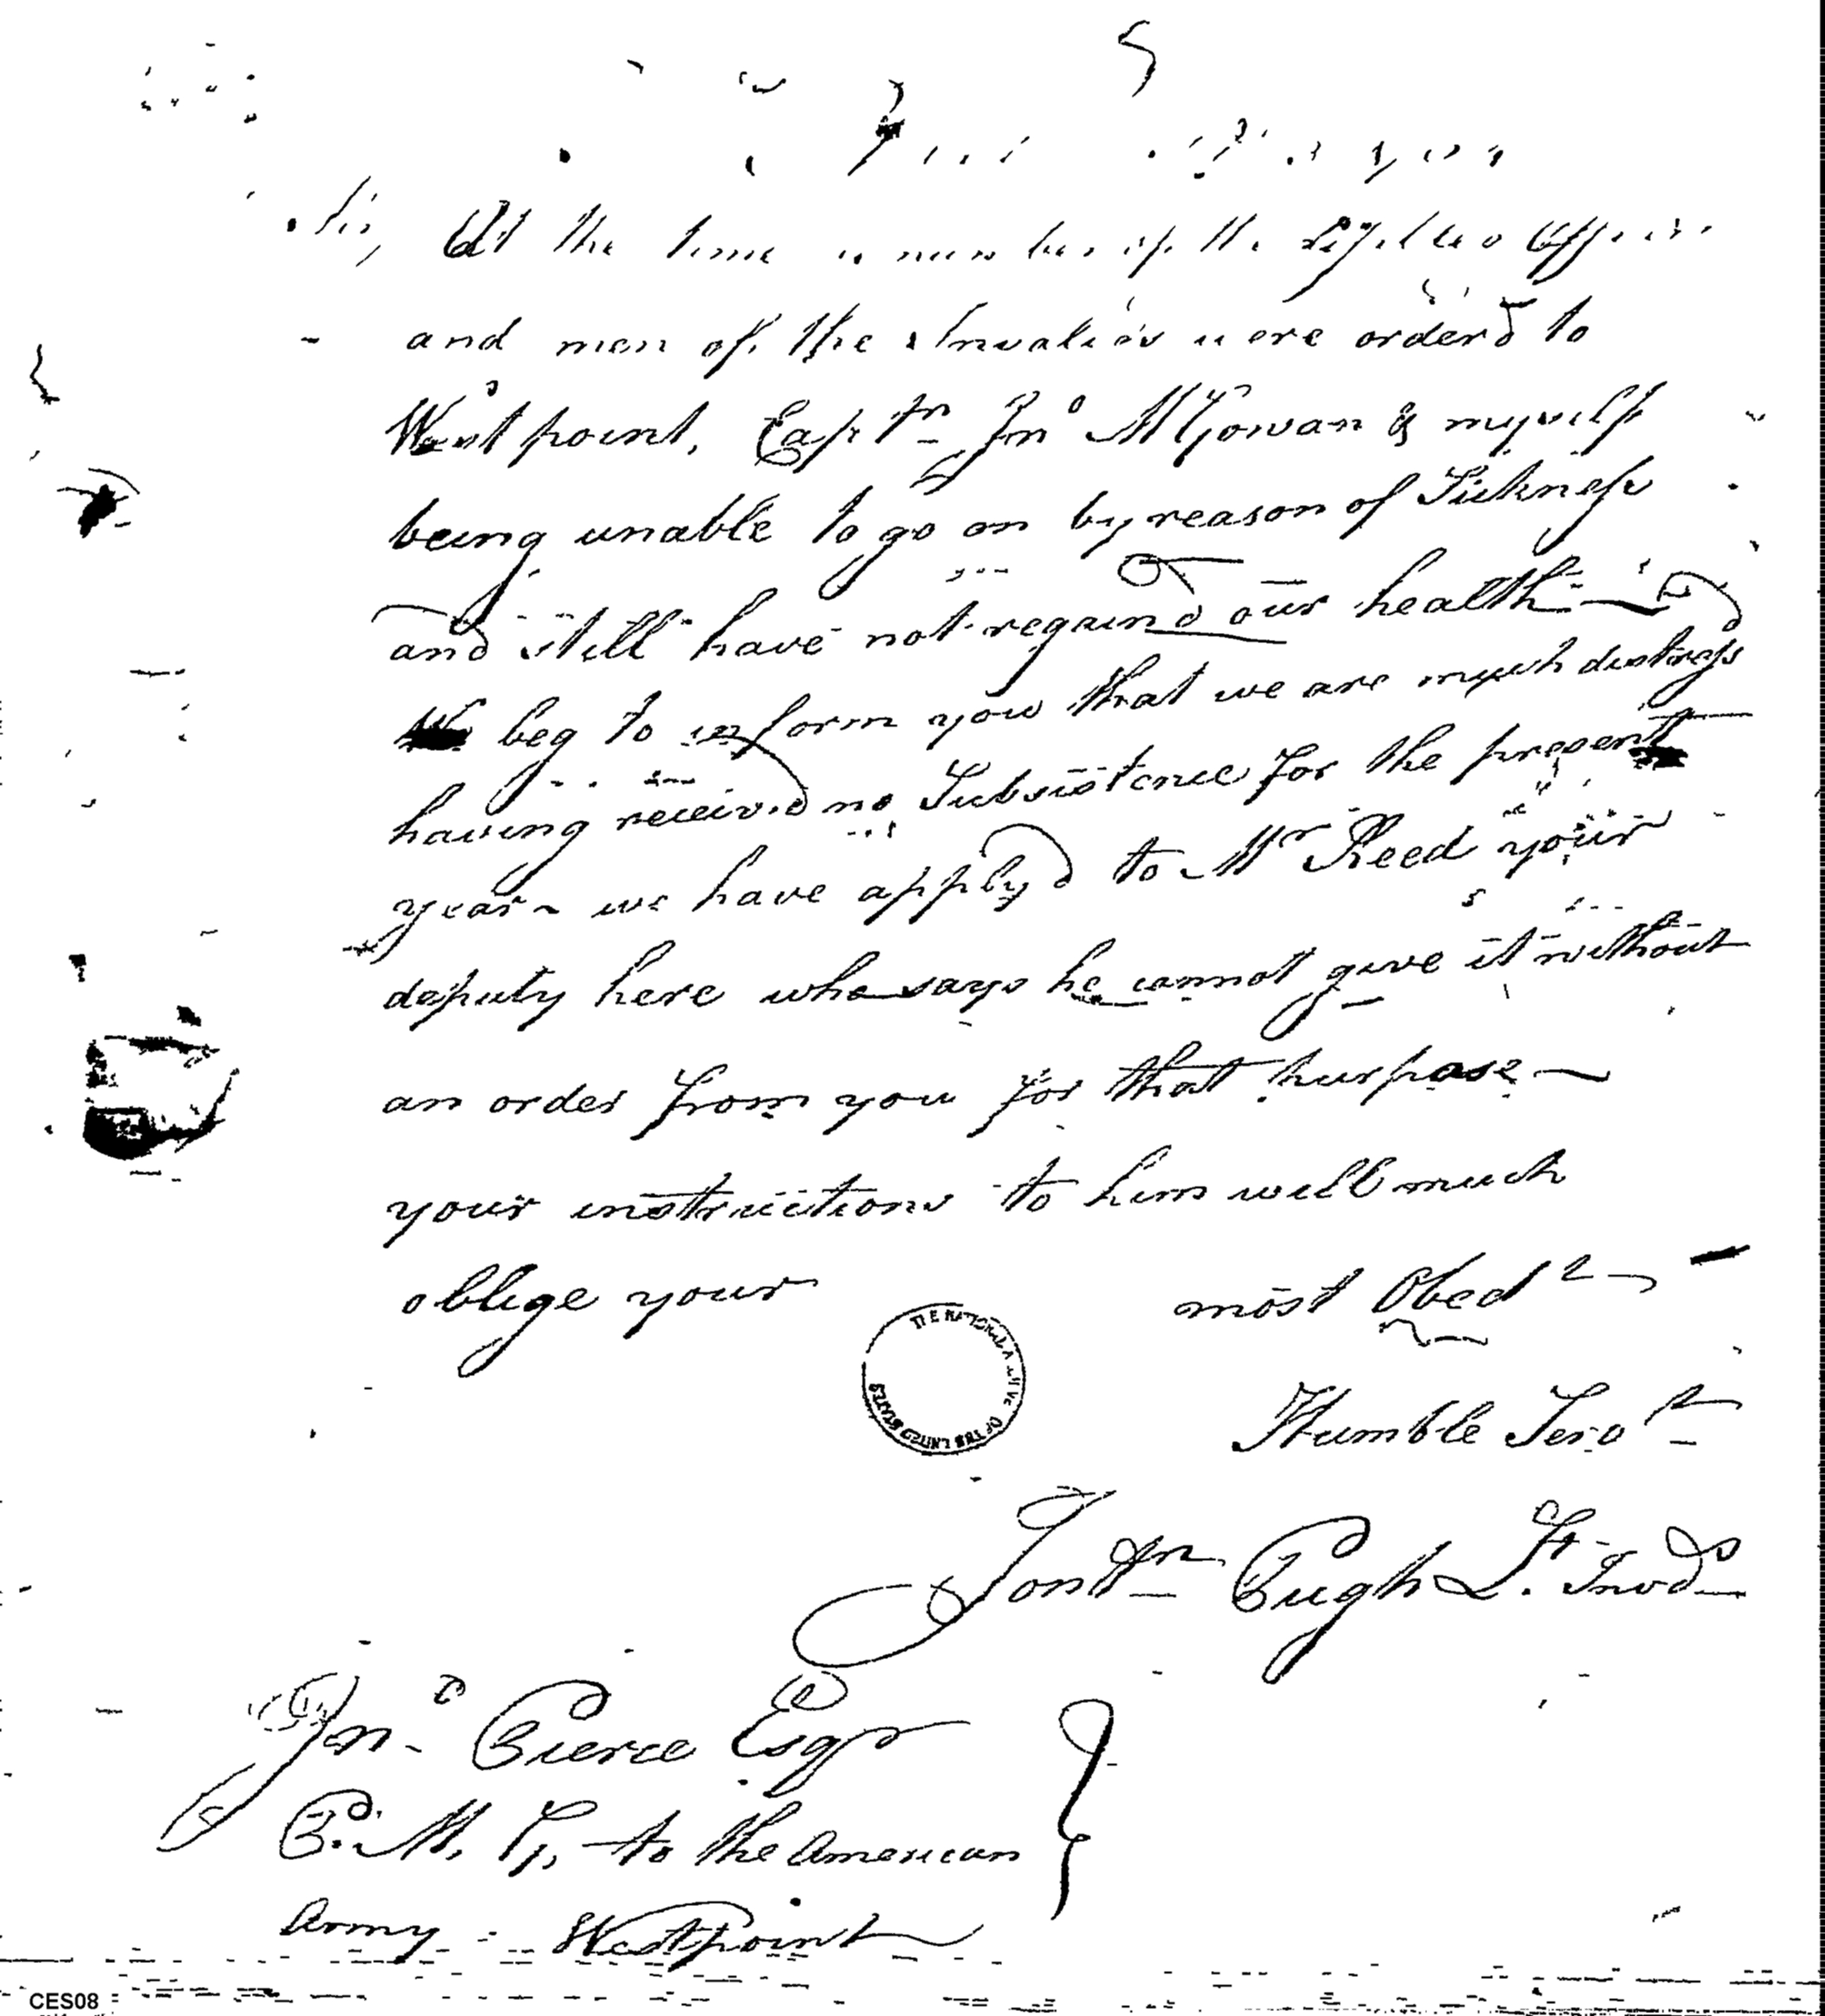 Sir, At the time a number of the Officers
and men of the Invalids were orderd to
West point, Captn Jno McGowan & myself
being unable to go on by reason of Sickness
and still have not regaind our health
We beg to inform you that we are much distress
having receivd no Subsistence for the present
year - we have applyd to Mr Reed your
deputy here who says he cannot give it without
an order from you for that purpose —
your instructions to him will much
oblige your most Obedt
Humble Servt
Jonthn Pugh Lt. Invds
Jno Pierce Esqr
P. M. G, to the American
Army Westpoint
THE NATIONAL ARCHIVES OF THE UNITED STATES
CES08